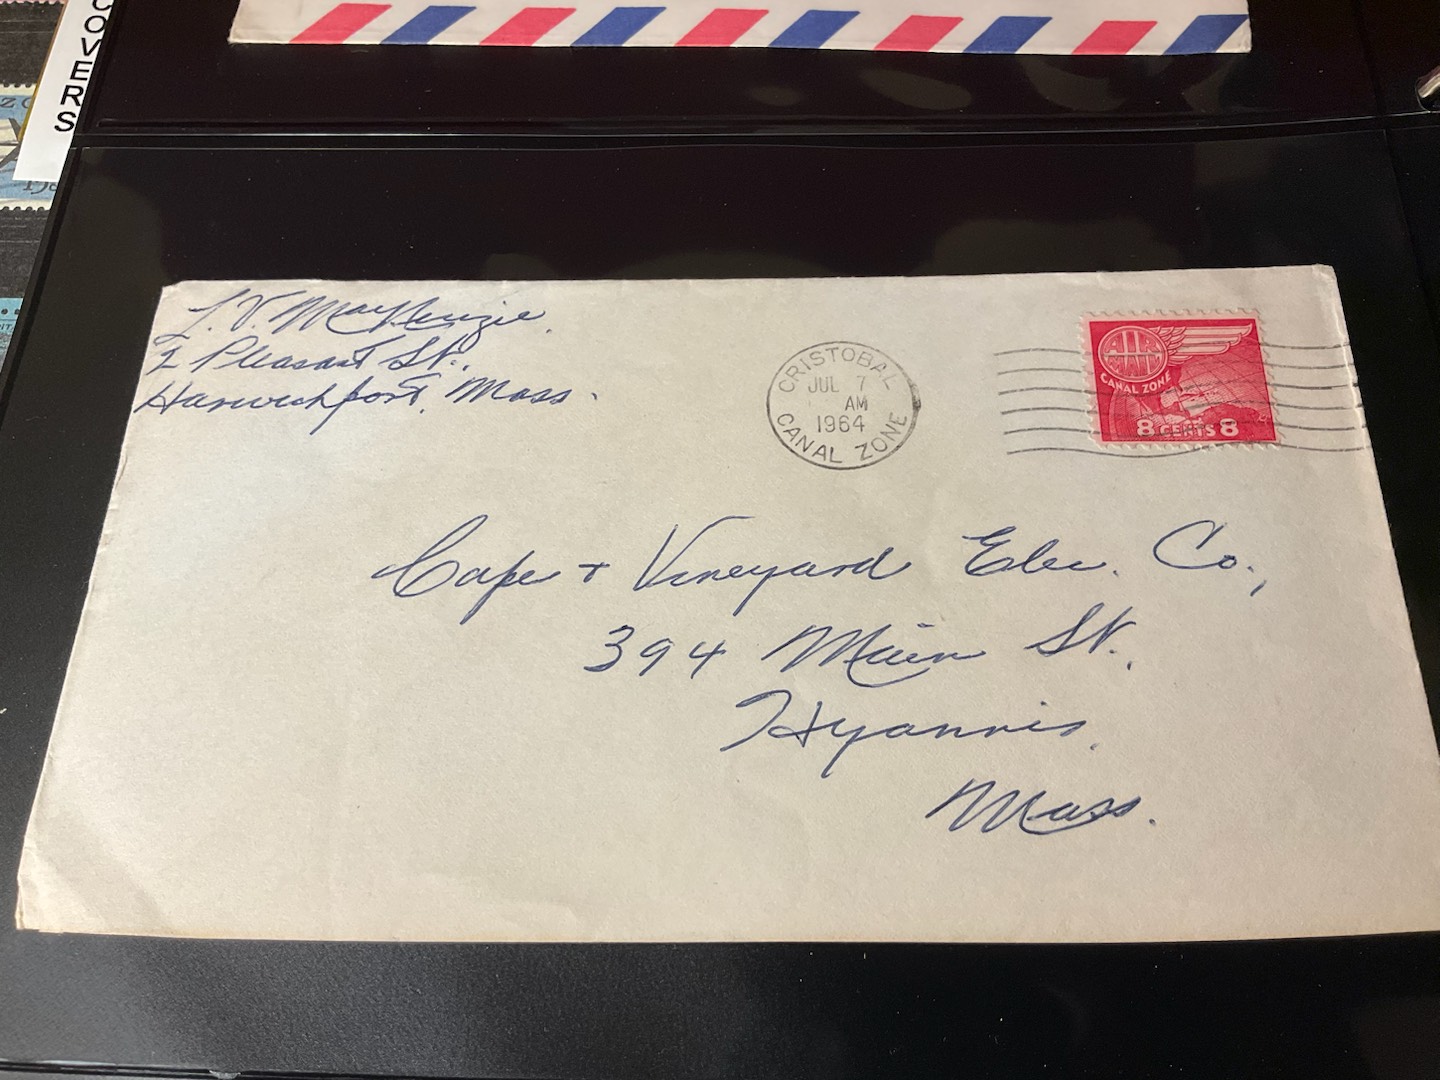 COVERS
L. V. MacKenzie.
2 Pleasant St.,
Harwichport, Mass.
CRISTOBAL
JUL 7
AM
1964
CANAL ZONE
AIR
MAIL
CANAL ZONE
8 CENTS 8
Cape + Vineyard Elec. Co.,
394 Main St.
Hyannis,
Mass.